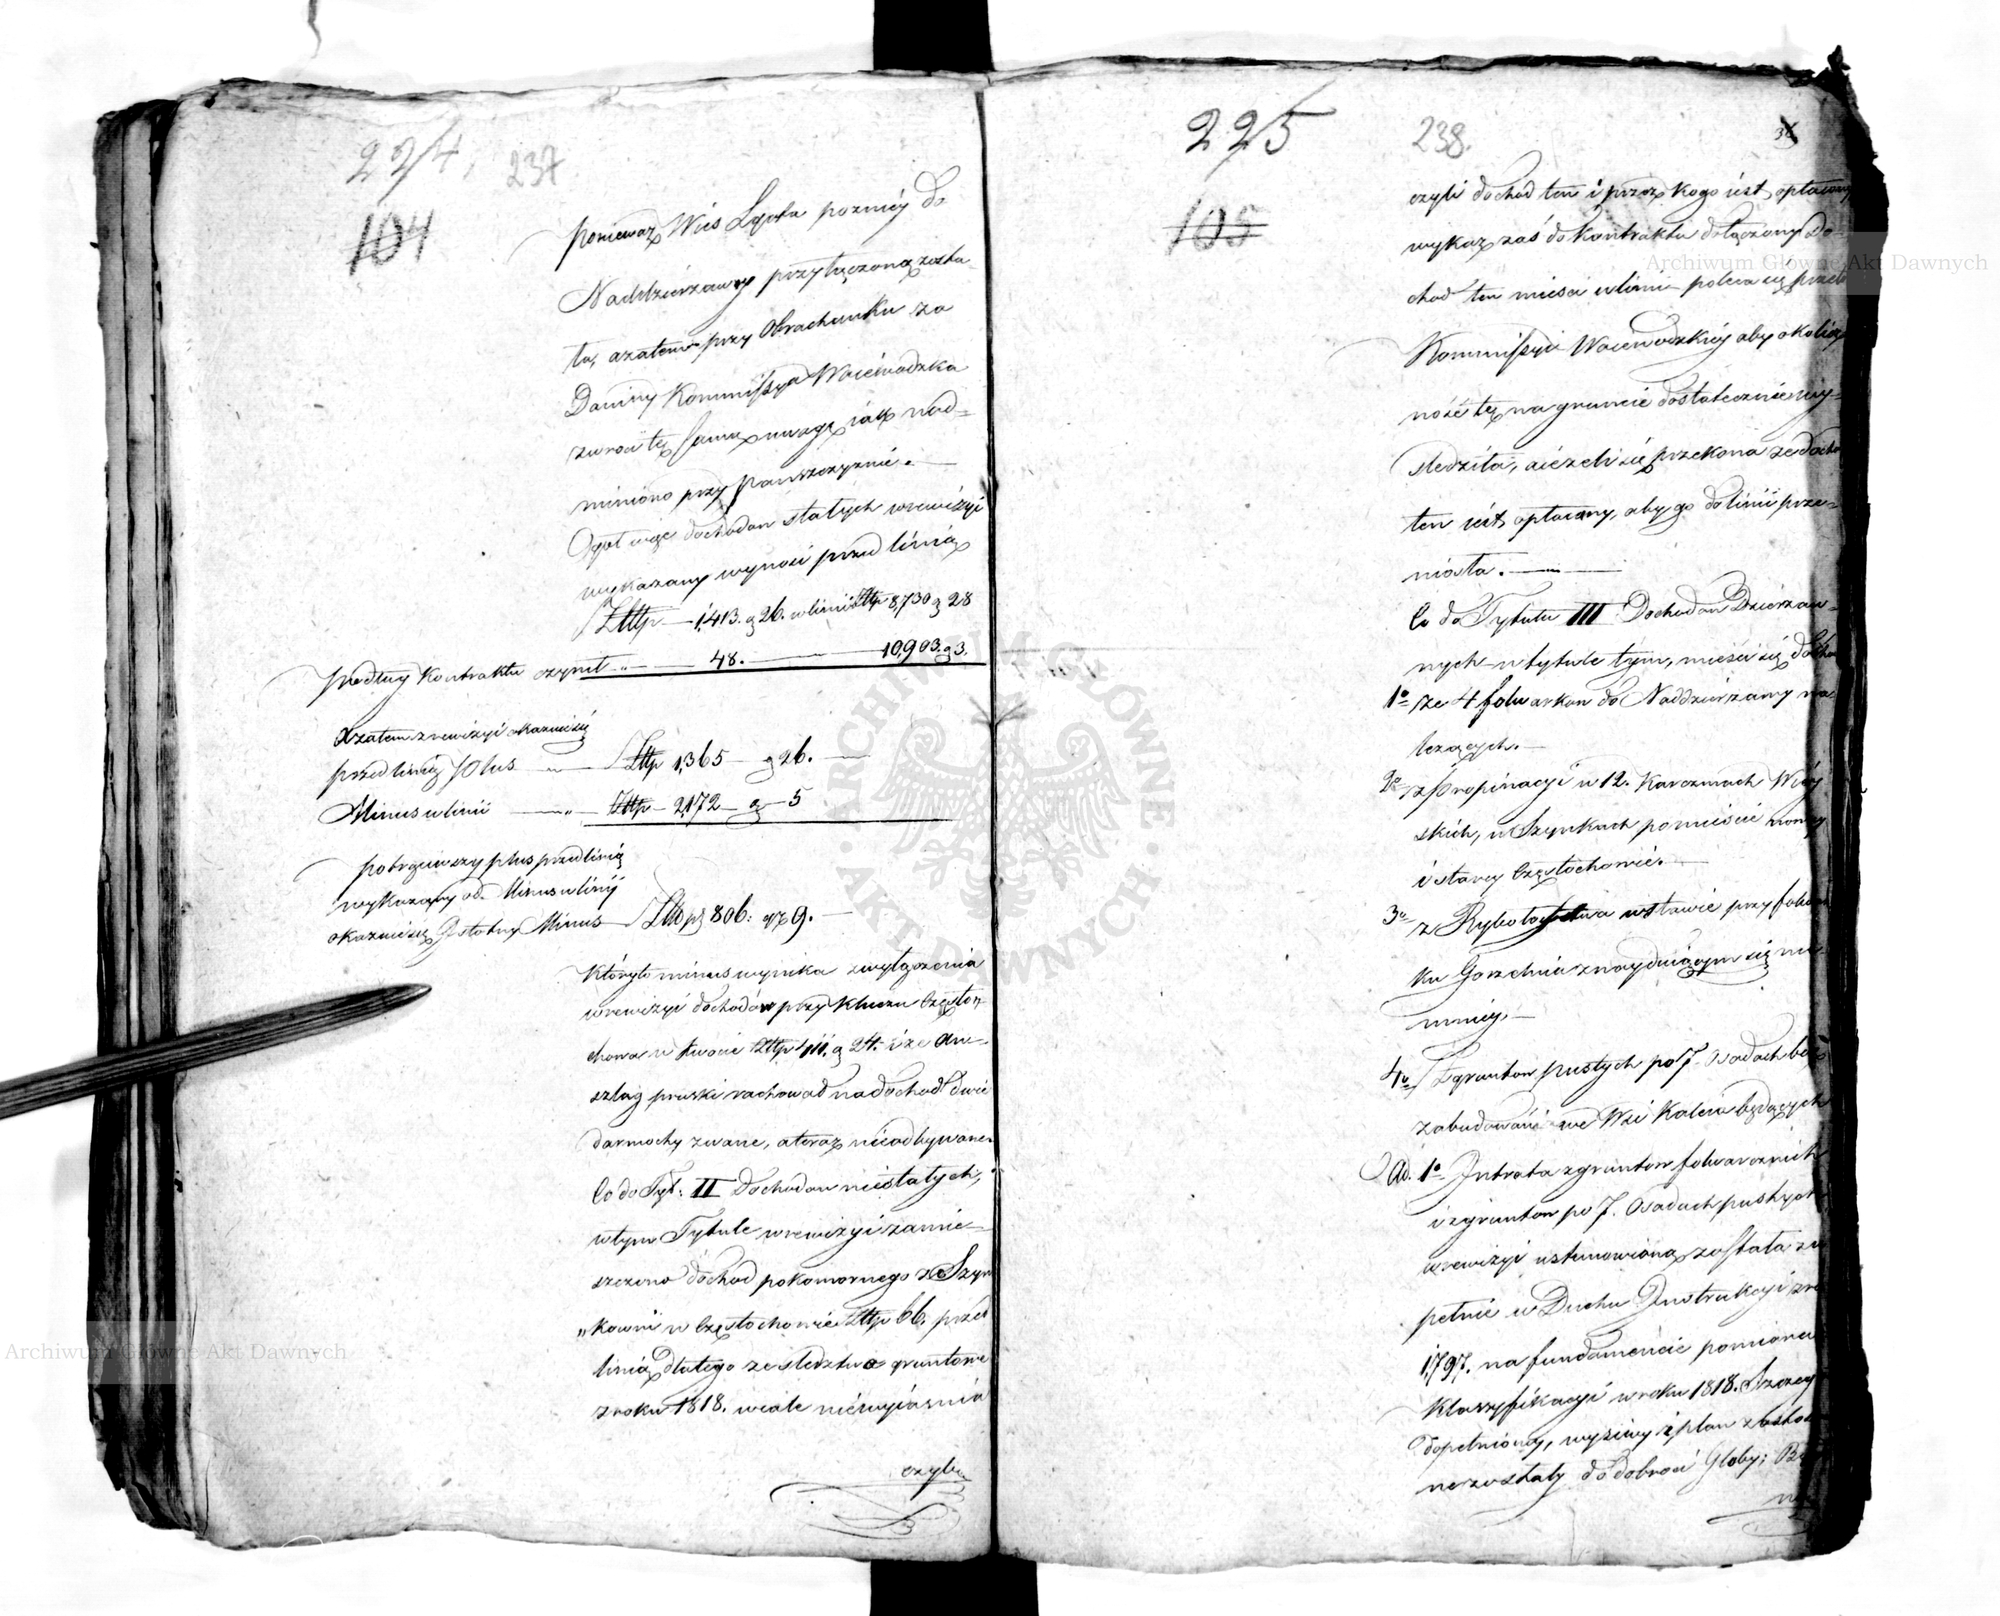 224, 237
104
ponieważ Wieś Lgota pozniéy do
Naddzierzawy przyłączoną zosta-
ła, azatem przy Obrachunku za
Daniny Kommissya Woiewodzka
zwroci tę samą uwagę iak nad-
mniono przy Panszczyznie. —
Ogół więc dochodow stałych w rewizyi
wykazany wynosi przed linią
Złtp — 1,413. g 26. w linii Złtp 8,730 g 28
podług Kontraktu czynił „ — 48. — „ — 10,903. g 3.
Azatem z rewizyi okazuie się
przed linią Plus — „ — Złtp 1,365 — g 26. —
Minus w linii — „ — Złtp — 2,172 — g — 5
potrąciwszy plus przed linią
wykazany od Minus w linij
okazuie się Istotny Minus — Złtp 806: gr 9. —
Któryto minus wynika z wyłączenia
w rewizyi dochodów przy Kluczu Często-
chowa w kwocie Złtp 411. g 24. i że An-
szlag pruski rachował na dochod dwie
darmochy zwane, a teraz nieodbywane.
Co do Tyt: II Dochodow niestałych,
w tym Tytule w rewizyi zamie-
szczono dochod pokomornego z Szyn
„kowni w Częstochowie Złtp 66. przed
linią dlatego ze sledztwo gruntowe
z roku 1818. wcale niewyiasnia
czyli
225 238.
105
czyli dochod ten i przez kogo iest opłacany
wykaz zaś do Kontraktu dołączony Do-
chod ten miesci w linii — poleca się przeto
Kommissyi Woiewodzkiéy aby okolicz
ność tę na gruncie dostatecznie wy-
sledziła, a ieżeli się przekona ze dochod
ten iest opłacany, aby go do linii prze-
niosła. —
Co do Tytułu III Dochodow Dzierzaw-
nych — w tytule tym, mieści się dochod
1o ze 4 folwarkow do Naddzierzawy na-
lezących. —
2o z Propinacyi w 12. Karczmach Wiey
skich, w Szynkach pomieście nowey
i starey Częstochowie. —
3o z Rybołostwa w stawie przy folwar
ku Gorzelnia znayduiącym się nu-
mniey. —
4o Z gruntow pustych po 7. osadach bez
zabudowań we Wsi Kaleia będących
Ad. 1o Intrata z gruntow folwarcznich
i z gruntow po 7. Osadach pustych
w rewizyi ustanowioną została zu
pełnie w Duchu Instrukcyi z ro
1,797. na fundamencie pomiaru
Klassyfikacyi w roku 1818. Szczeg
dopełnioney, wysiewy i plan zastos
ne zostały do dobroci Gleby;
Archiwum Główne Akt Dawnych
Archiwum Główne Akt Dawnych
ARCHIWUM GŁÓWNE
AKT DAWNYCH